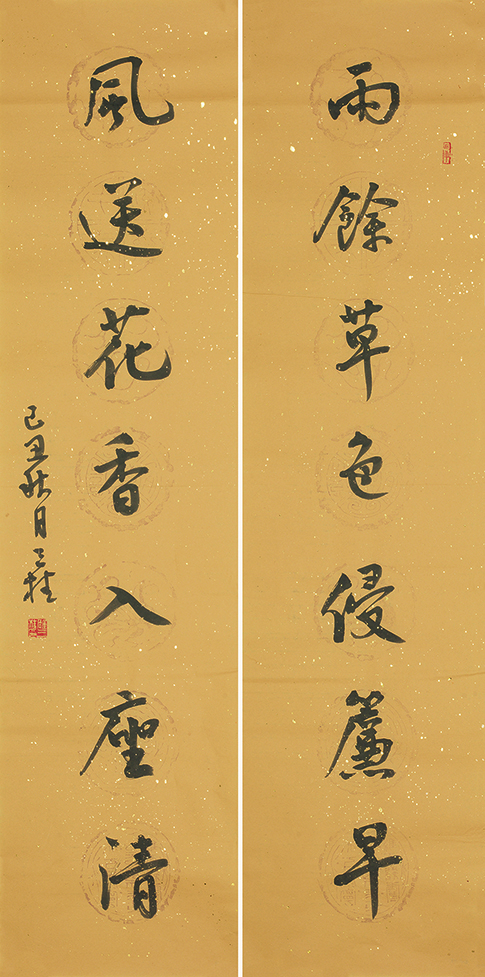 雨餘草色侵簾早
風送花香入座清
己丑秋月